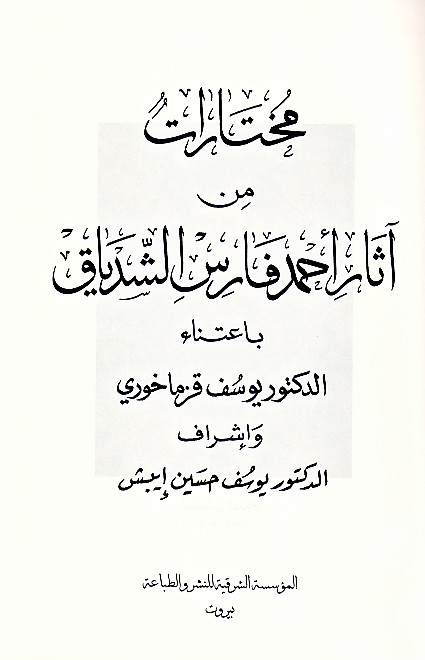 مُختَارَاتٌ
مِن
آثَارِ أَحمَد فَارِسْ الشّدْيَاق
باعتناء
الدكتور يوسُف قزما خوري
وَإشراف
الدكتور يوسُف حسَين إيبش
المؤسسة الشرقية للنشر والطباعة
بيروت